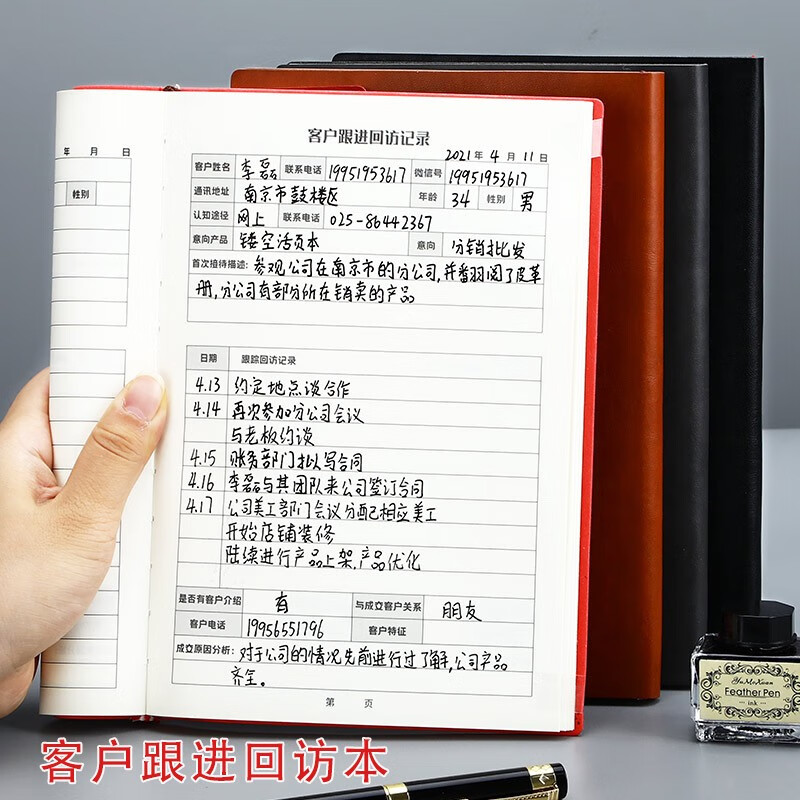 年 月 日
性别
客户跟进回访记录
2021年 4月 11日
客户姓名 李磊 联系电话 19951953617 微信号 19951953617
通讯地址 南京市鼓楼区 年龄 34 性别 男
认知途径 网上 联系电话 025-86442367
意向产品 镂空活页本 意向 分销批发
首次接待描述: 参观公司在南京市的分公司,并翻阅了皮革
册,分公司有部分所在销卖的产品
日期 跟踪回访记录
4.13 约定地点谈合作
4.14 再次参加分公司会议
与老板约谈
4.15 账务部门拟写合同
4.16 李磊与其团队来公司签订合同
4.17 公司美工部门会议分配相应美工
开始店铺装修
陆续进行产品上架,产品优化
是否有客户介绍 有 与成立客户关系 朋友
客户电话 19956551796 客户特征
成立原因分析: 对于公司的情况先前进行过了解,公司产品
齐全。
第 页
客户跟进回访本
YuMoXuan
Feather Pen
ink